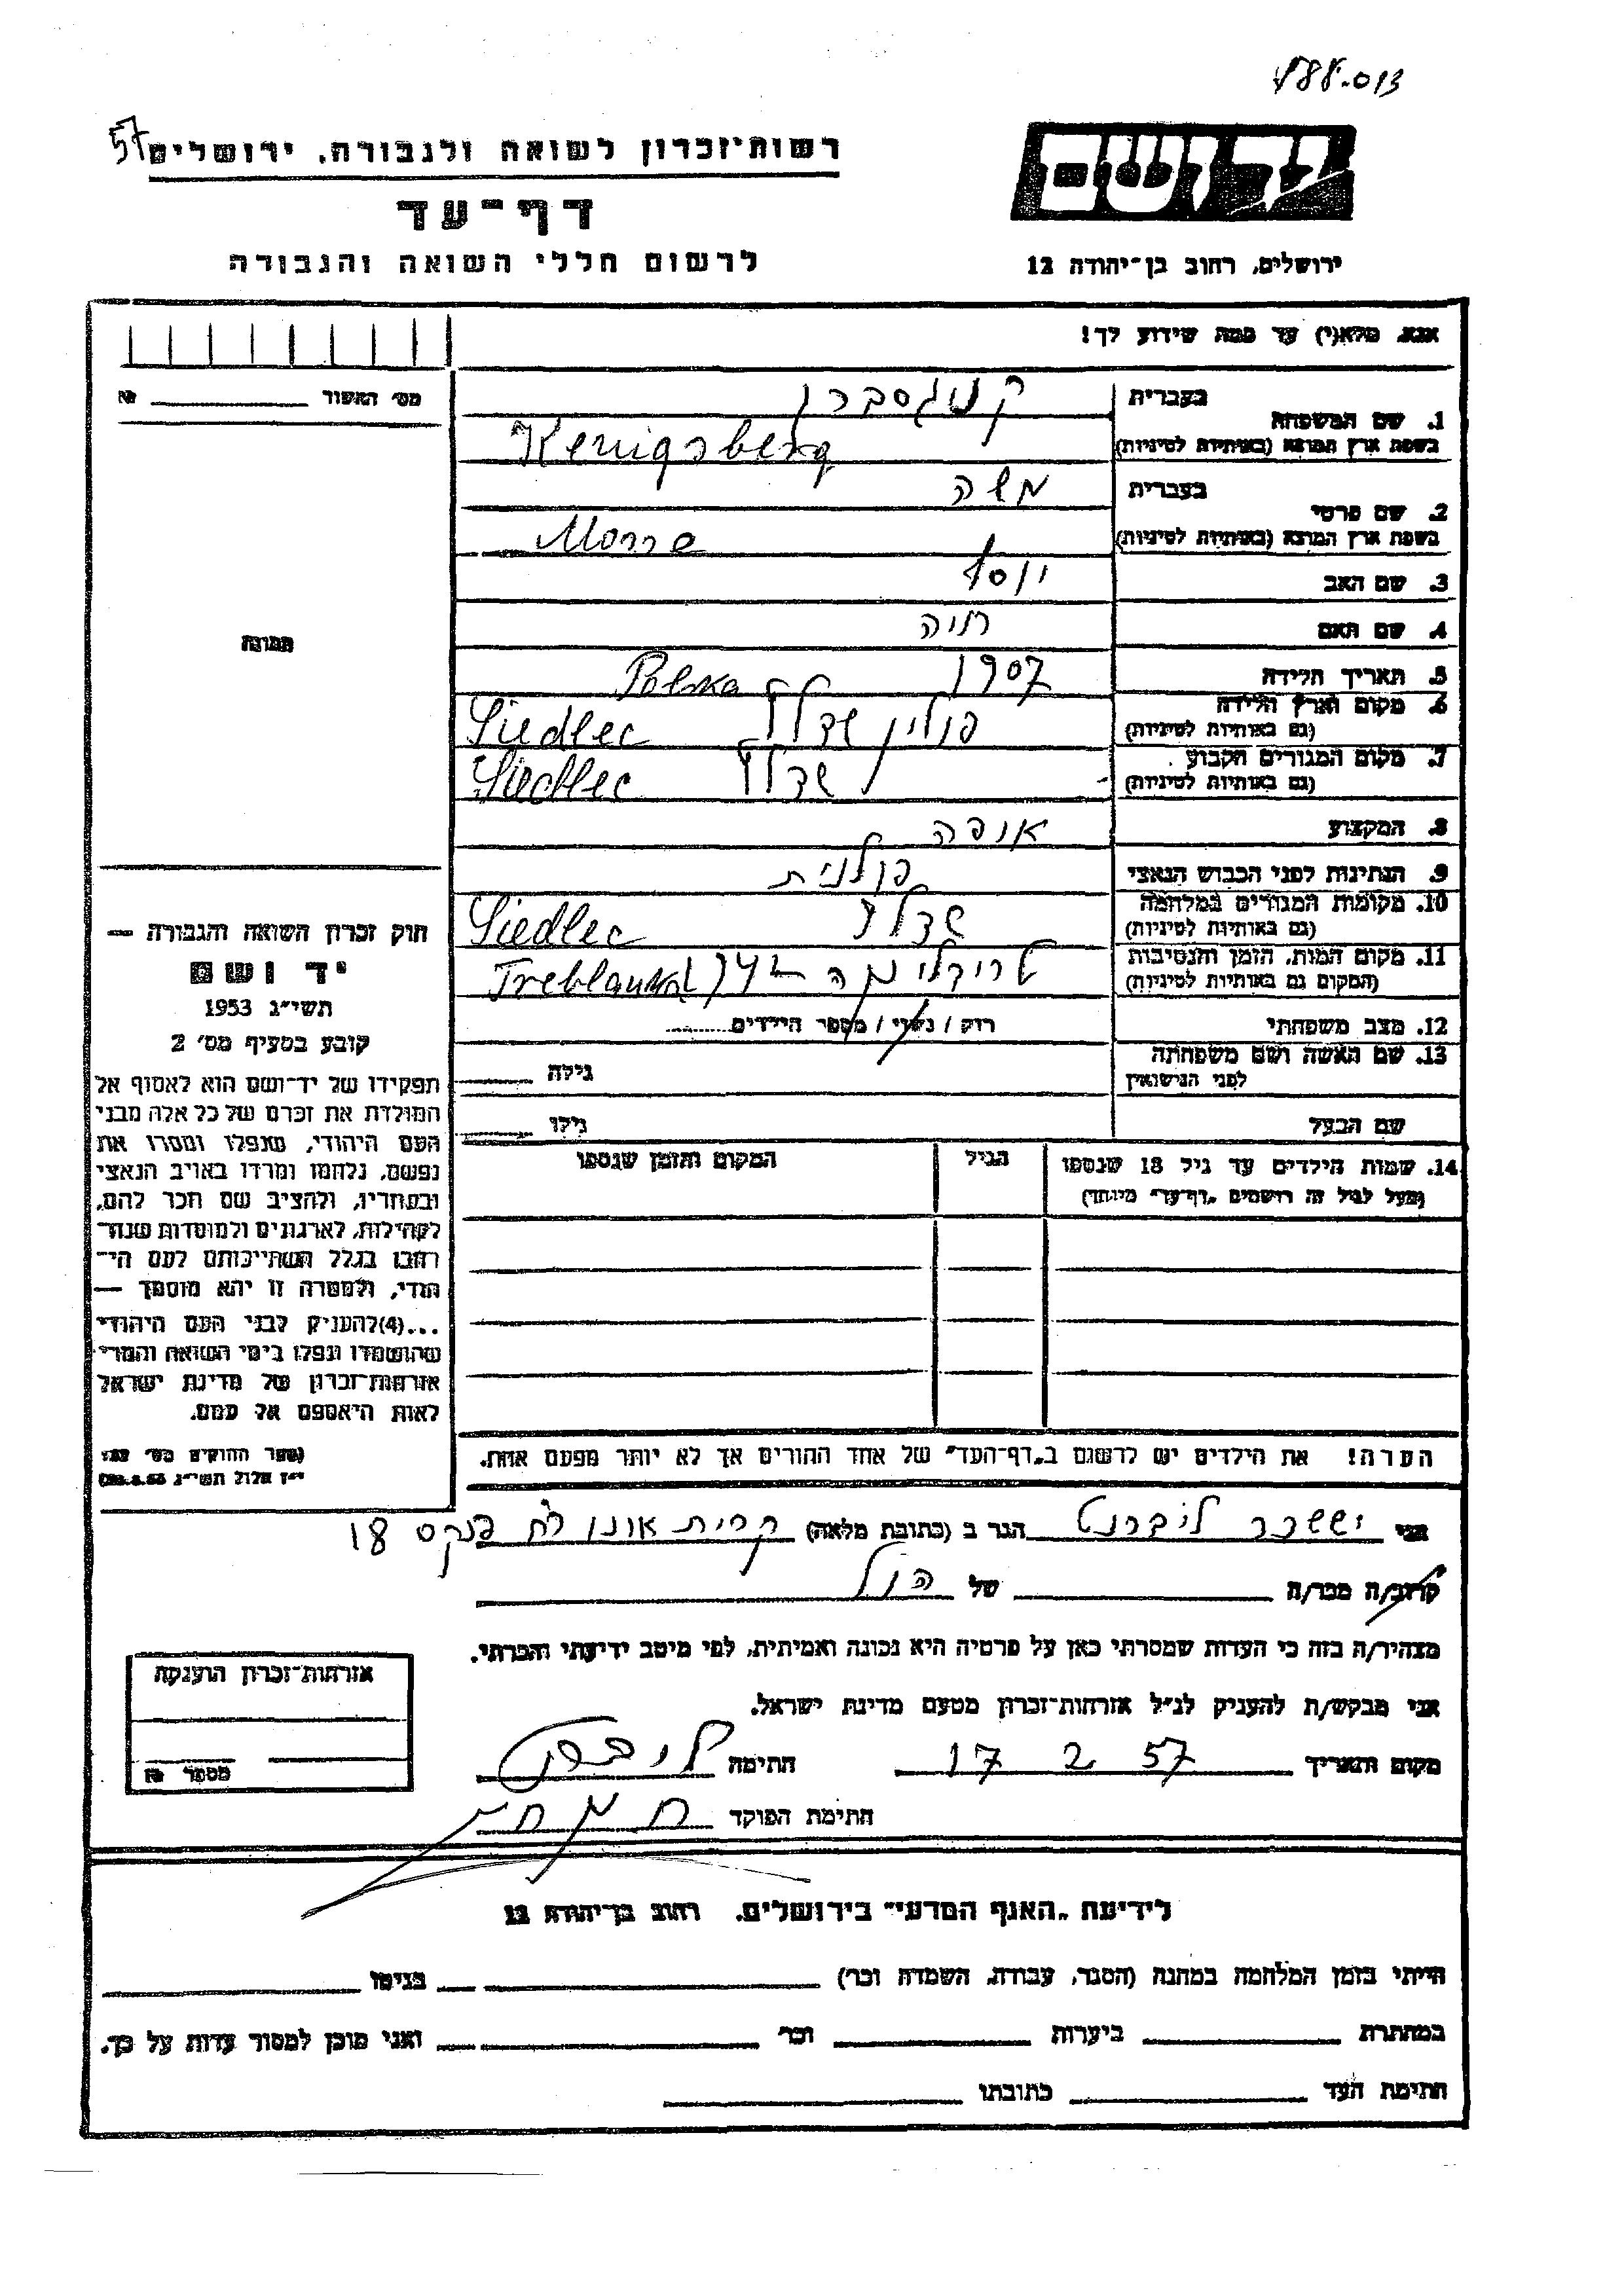 רשות־זכרון לשואה ולגבורה, ירושלים
57
דף־עד
לרשום חללי השואה והגבורה
ירושלים, רחוב בן־יהודה 12
אנא, מלא(י) עד כמה שידוע לך!
מס׳ האשור №
1. שם המשפחה
בעברית
בשפת ארץ המוצא (באותיות לטיניות)
Kenigsberg
2. שם פרטי
בעברית משה
בשפת ארץ המוצא (באותיות לטיניות)
3. שם האב יוסף
4. שם האם
5. תאריך הלידה 1907
6. מקום וארץ הלידה
(גם באותיות לטיניות)
פולין שדלץ Siedlec Polska
7. מקום המגורים הקבוע
(גם באותיות לטיניות)
שדלץ Siedlec
8. המקצוע אופה
9. הנתינות לפני הכבוש הנאצי פולנית
10. מקומות המגורים במלחמה
(גם באותיות לטיניות)
שדלץ Siedlec
11. מקום המות, הזמן והנסיבות
(המקום גם באותיות לטיניות)
טריבלינקה
12. מצב משפחתי רוק / נשוי / מספר הילדים
13. שם האשה ושם משפחתה
לפני הנישואין
גילה
שם הבעל גילו
14. שמות הילדים עד גיל 18 שנספו
(מעל לגיל זה רושמים „דף־עד״ מיוחד)
הגיל
המקום והזמן שנספו
הערה! את הילדים יש לרשום ב„דף־העד״ של אחד ההורים אך לא יותר מפעם אחת.
תמונה
חוק זכרון השואה והגבורה —
יד ושם
תשי״ג 1953
קובע בסעיף מס׳ 2
תפקידו של יד־ושם הוא לאסוף אל
המולדת את זכרם של כל אלה מבני
העם היהודי, שנפלו ומסרו את
נפשם, נלחמו ומרדו באויב הנאצי
ובעוזריו, ולהציב שם וזכר להם,
לקהילות, לארגונים ולמוסדות שנח־
רבו בגלל השתייכותם לעם הי־
הודי, ולמטרה זו יהא מוסמך —
...(4)להעניק לבני העם היהודי
שהושמדו ונפלו בימי השואה והמרי
אזרחות־זכרון של מדינת ישראל
לאות היאספם אל עמם.
אני יששכר הגר ב (כתובת מלאה) קרית אונו רח פנקס 18
קרוב/ה מכר/ה של הנ״ל
מצהיר/ה בזה כי העדות שמסרתי כאן על פרטיה היא נכונה ואמיתית, לפי מיטב ידיעתי והכרתי.
אני מבקש/ת להעניק לנ״ל אזרחות־זכרון מטעם מדינת ישראל.
מקום ותאריך 17 2 57 חתימה
חתימת הפוקד
אזרחות־זכרון הוענקה
מספר №
לידיעת „האגף המדעי״ בירושלים. רחוב בן־יהודה 12
הייתי בזמן המלחמה במחנה (הסגר, עבודה, השמדה וכו׳) בגיטו
במחתרת ביערות וכו׳ ואני מוכן למסור עדות על כך.
חתימת העד כתובתו